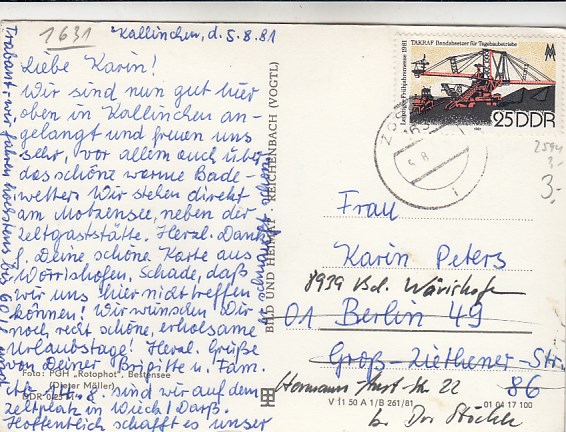 1631
Kallinchen, d. 5.8.81
Liebe Karin!
Wir sind nun gut hier
oben in Kallinchen an-
gelangt und freuen uns
sehr, vor allem auch über
das schöne warme Bade-
wetter. Wir stehen direkt
am Motzensee, neben der
Zeltgaststätte. Herzl. Dank
f. Deine schöne Karte aus
Wörrishofen. Schade, daß
wir uns hier nicht treffen
können! Wir wünschen Dir
noch recht schöne, erholsame
Urlaubstage! Herzl. Grüße
von Deiner Brigitte u. Fam.
Foto: PGH „Rotophot", Bestensee
(Dieter Möller)
DDR 0.25 M
Ab 14.8. sind wir auf dem
Zeltplatz in Wieck/Darß.
Hoffentlich schafft es unser
Trabant - wir fahren höchstens bis 60
BILD UND HEIMAT REICHENBACH (VOGTL)
TAKRAF Bandabsetzer für Tagebaubetriebe
Leipziger Frühjahrsmesse 1981
MM
25 DDR
5.8.
3.-
3.-
Frau
Karin Peters
8939 Bad Wörishofen
01 Berlin 49
Groß-Ziethener-Str.
86
Hermann
22
b.
V 11 50 A 1/B 261/81
01 04 17 100